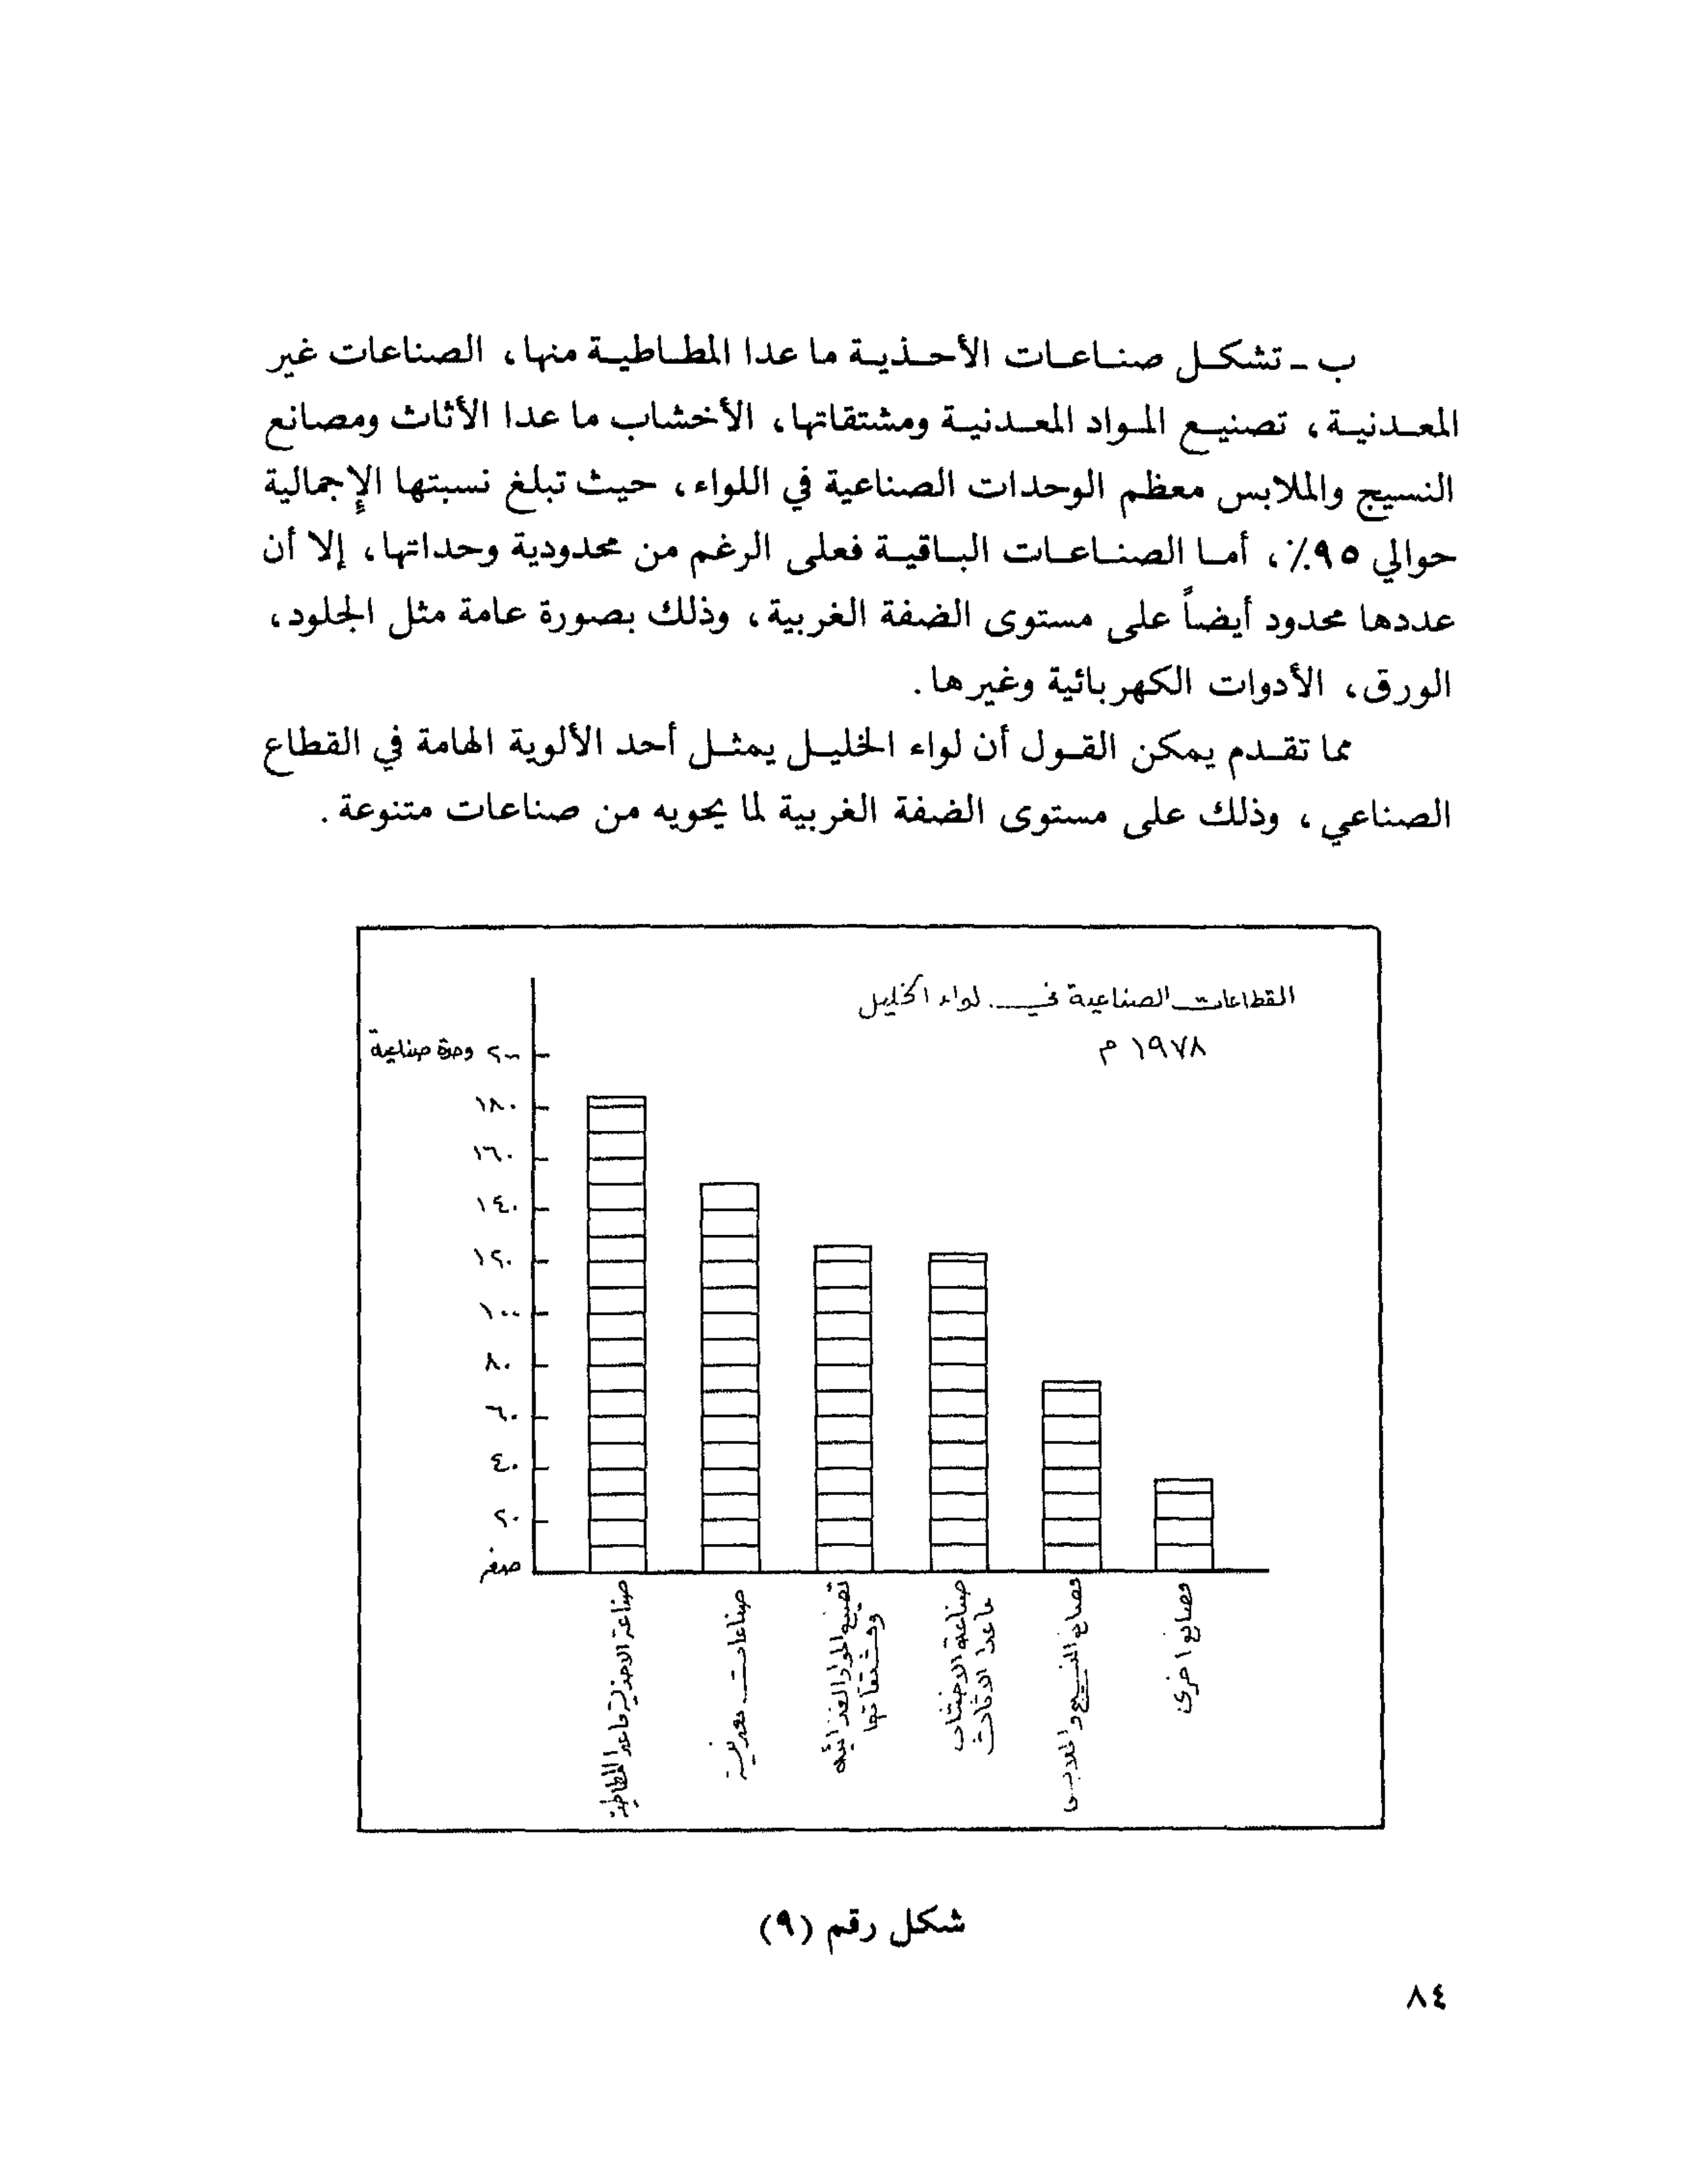 ب ـ تشكل صناعات الأحذية ما عدا المطاطية منها، الصناعات غير
المعدنية، تصنيع المواد المعدنية ومشتقاتها، الأخشاب ما عدا الأثاث ومصانع
النسيج والملابس معظم الوحدات الصناعية في اللواء، حيث تبلغ نسبتها الإجمالية
حوالي ٩٥٪، أما الصناعات الباقية فعلى الرغم من محدودية وحداتها، إلا أن
عددها محدود أيضاً على مستوى الضفة الغربية، وذلك بصورة عامة مثل الجلود،
الورق، الأدوات الكهربائية وغيرها.
مما تقدم يمكن القول أن لواء الخليل يمثل أحد الألوية الهامة في القطاع
الصناعي، وذلك على مستوى الضفة الغربية لما يحويه من صناعات متنوعة.
القطاعات الصناعية في لواء الخليل
١٩٧٨ م
٢٠٠ وحدة صناعية
١٨٠
١٦٠
١٤٠
١٢٠
١٠٠
٨٠
٦٠
٤٠
٢٠
صفر
صناعة الاحذية ماعدا المطاطية
صناعات معدنية
تصنيع المواد الغذائية
ومشتقاتها
صناعة الاخشاب
ماعدا الاثاث
مصانع النسيج والملابس
مصانع اخرى
شكل رقم (٩)
٨٤